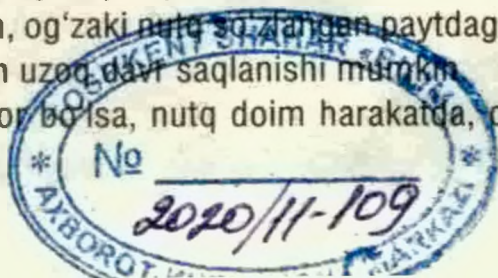 , og‘zaki nutq so‘zlangan paytdag
uzoq davr saqlanishi mumkin
bo‘lsa, nutq doim harakatda,
TOSHKENT SHAHAR
№
2020/11-109
AXBOROT
MARKAZI